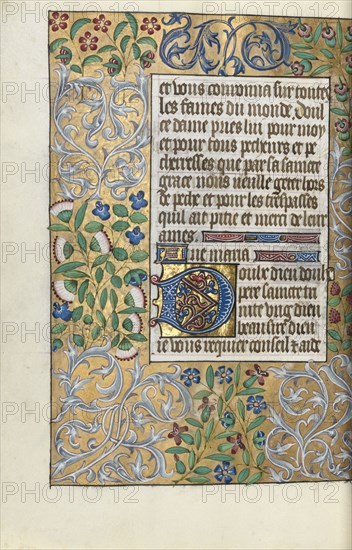 et vous couronna sur toutes
les fames du monde. Doul
ce dame pries lui pour moy
et pour tous pecheurs et pe
cheresses que par sa saincte
grace nous vueille geter hors
de peche et pour les trespasses
qu'il ait pitie et merci de leur
ames
Ave maria
Doulx dieu doulx
pere saincte tri
nite ung dieu
beausire dieu
ie vous requier conseil & aide
PHOTO12